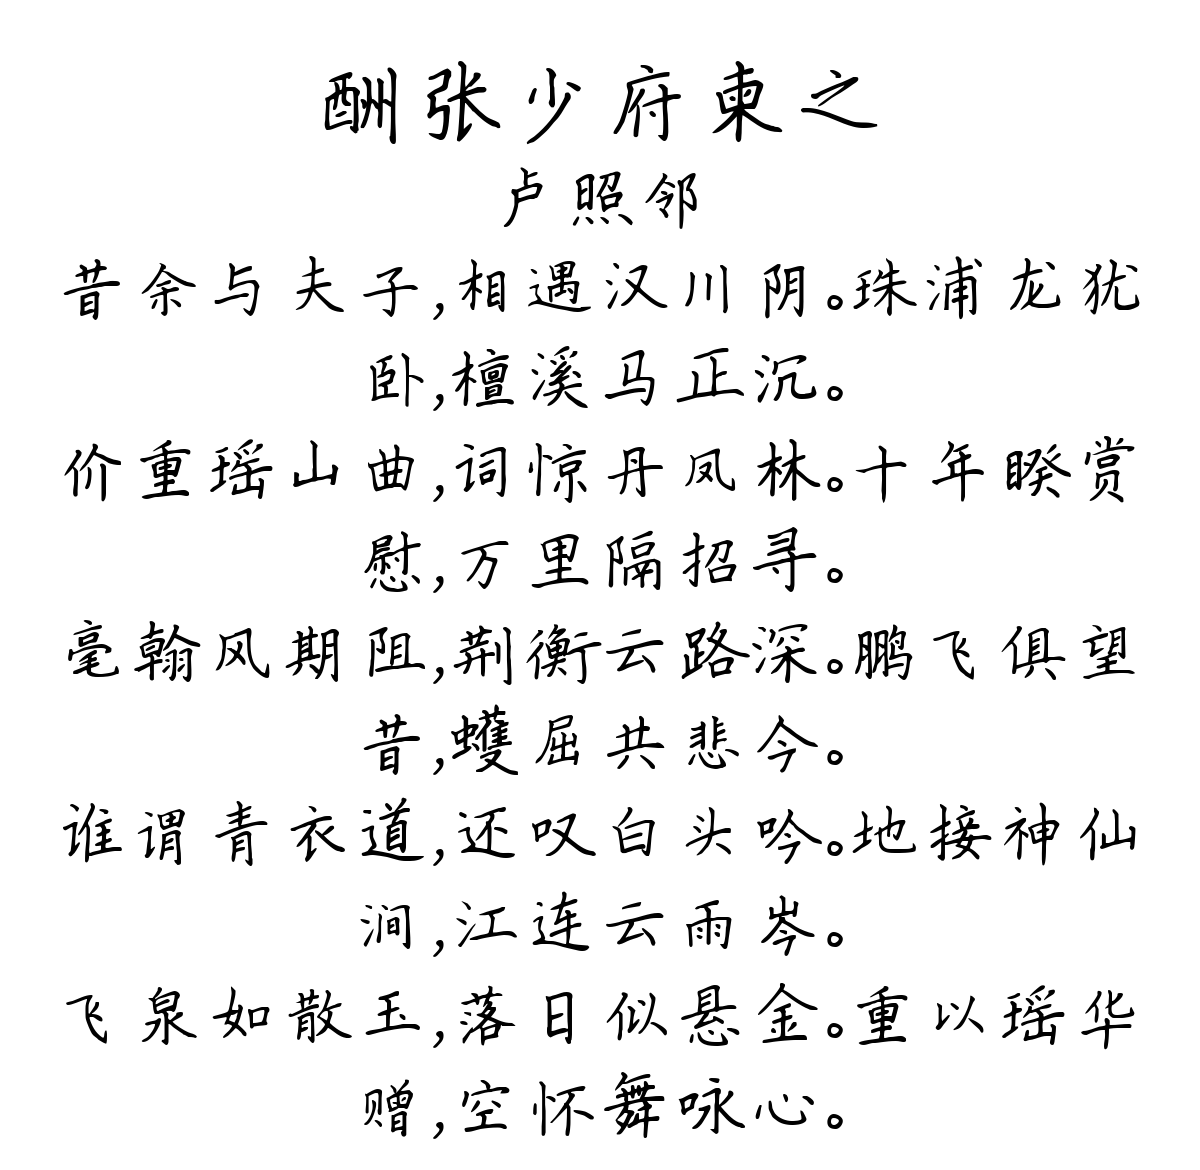 酬张少府柬之
卢照邻
昔余与夫子,相遇汉川阴。珠浦龙犹
卧,檀溪马正沉。
价重瑶山曲,词惊丹凤林。十年睽赏
慰,万里隔招寻。
毫翰风期阻,荆衡云路深。鹏飞俱望
昔,蠖屈共悲今。
谁谓青衣道,还叹白头吟。地接神仙
涧,江连云雨岑。
飞泉如散玉,落日似悬金。重以瑶华
赠,空怀舞咏心。